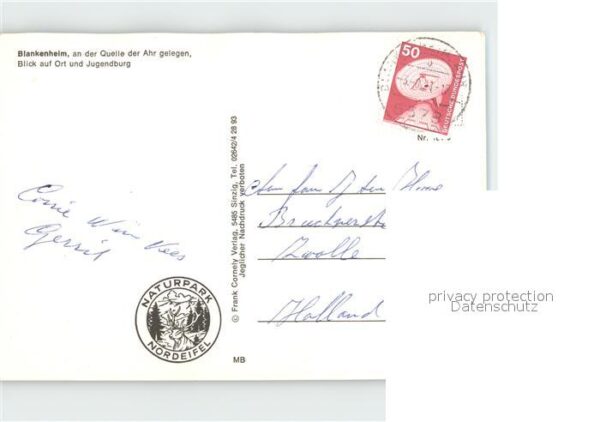 Blankenheim, an der Quelle der Ahr gelegen,
Blick auf Ort und Jugendburg
50
DEUTSCHE BUNDESPOST
Nr.
© Frank Cornely Verlag, 5485 Sinzig, Tel. 02642/4 28 93
Jeglicher Nachdruck verboten
Corrie Wim Kees
Gerrit
Fam
Zwolle
Holland
NATURPARK
NORDEIFEL
MB
privacy protection
Datenschutz